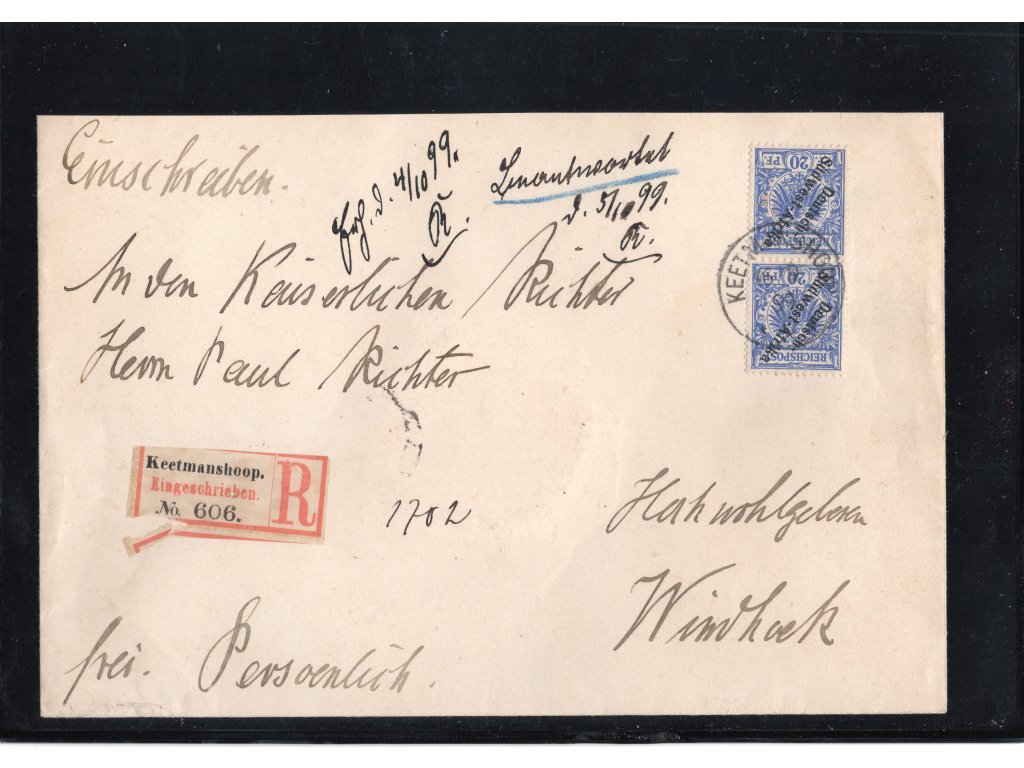 Einschreiben.
Erh. d. 4/10 99.
R.
Beantwortet
d. 5/10 99.
R.
An den Kaiserlichen Richter
Herrn Paul Richter
Keetmanshoop.
Eingeschrieben.
No. 606.
R
1702
Hochwohlgeboren
Windhoek
frei. Persoenlich.
20 PF.
Deutsch-
Südwest-Afrika
REICHSPOST
20 PF.
Deutsch-
Südwest-Afrika
REICHSPOST